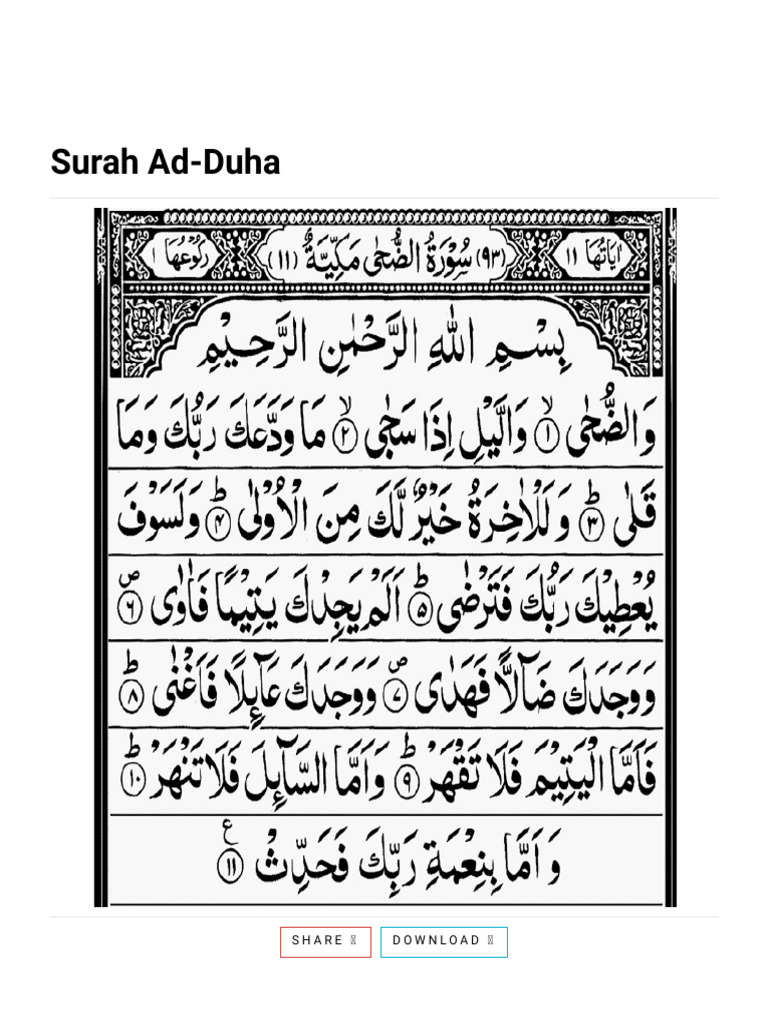 Surah Ad-Duha
اٰيَاتُهَا ١١ (٩٣) سُوْرَةُ الضُّحٰى مَكِّيَّةٌ (١١) رُكُوْعُهَا ١
بِسْمِ اللهِ الرَّحْمٰنِ الرَّحِيْمِ
وَالضُّحٰى ۙ﴿١﴾ وَالَّيْلِ اِذَا سَجٰى ۙ﴿٢﴾ مَا وَدَّعَكَ رَبُّكَ وَمَا
قَلٰى ؕ﴿٣﴾ وَلَلْاٰخِرَةُ خَيْرٌ لَّكَ مِنَ الْاُوْلٰى ؕ﴿٤﴾ وَلَسَوْفَ
يُعْطِيْكَ رَبُّكَ فَتَرْضٰى ؕ﴿٥﴾ اَلَمْ يَجِدْكَ يَتِيْمًا فَاٰوٰى ۪﴿٦﴾
وَوَجَدَكَ ضَآلًّا فَهَدٰى ۪﴿٧﴾ وَوَجَدَكَ عَآئِلًا فَاَغْنٰى ؕ﴿٨﴾
فَاَمَّا الْيَتِيْمَ فَلَا تَقْهَرْ ؕ﴿٩﴾ وَاَمَّا السَّآئِلَ فَلَا تَنْهَرْ ؕ﴿١٠﴾
وَاَمَّا بِنِعْمَةِ رَبِّكَ فَحَدِّثْ ﴿١١﴾ ع
SHARE DOWNLOAD